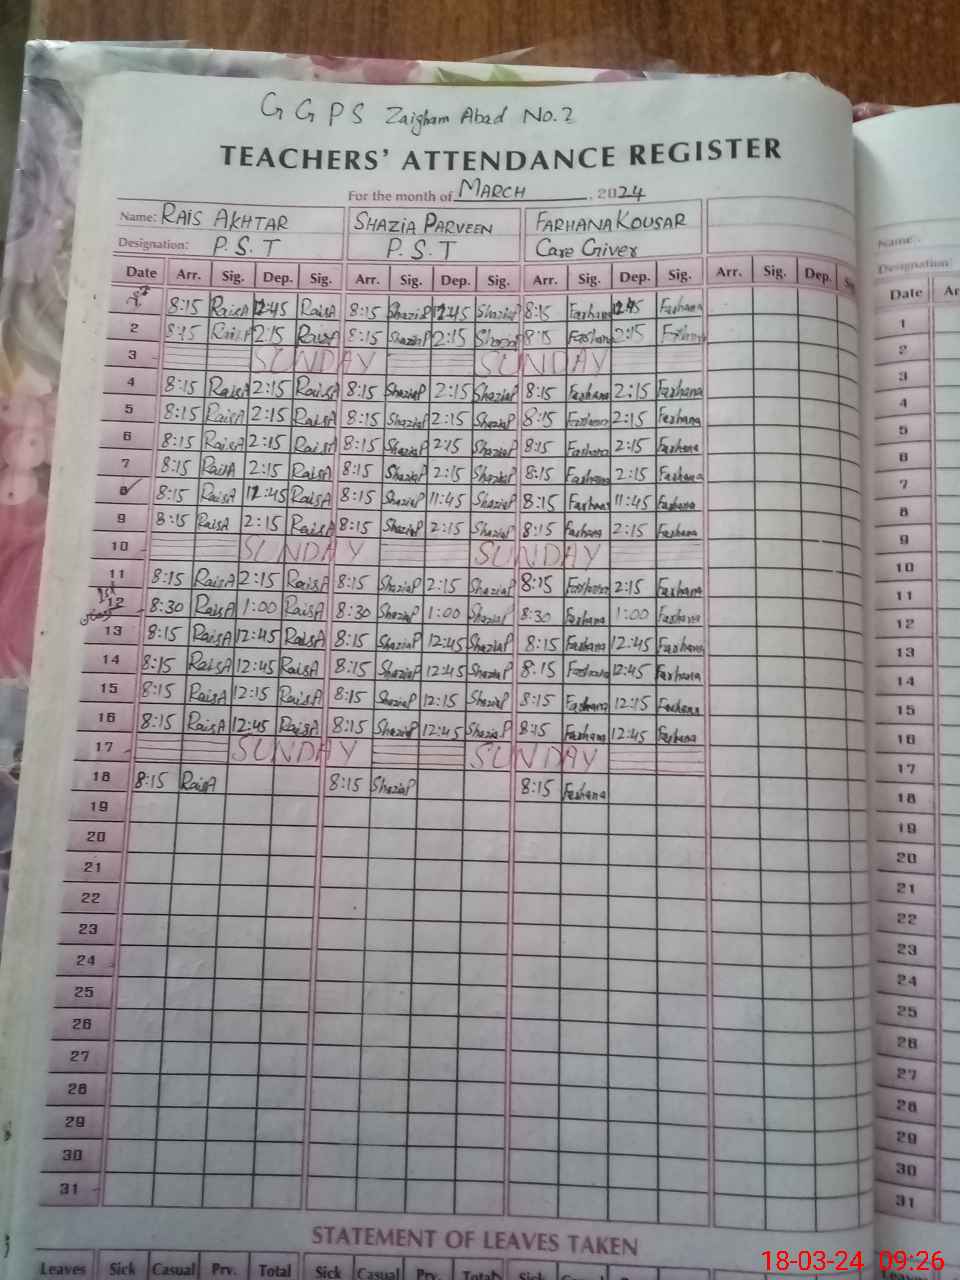 G G P S Zaigham Abad No.2
TEACHERS' ATTENDANCE REGISTER
For the month of MARCH, 2024
Name: RAIS AKHTAR SHAZIA PARVEEN FARHANA KOUSAR
Designation: P.S.T P.S.T Care Giver
Date Arr. Sig. Dep. Sig. Arr. Sig. Dep. Sig. Arr. Sig. Dep. Sig. Arr. Sig. Dep.
8:15 RaisA 12:45 RaisA 8:15 ShaziaP 12:45 ShaziaP 8:15 Farhana 12:45 Farhana
2 8:15 RaisA 2:15 RaisA 8:15 ShaziaP 2:15 ShaziaP 8:15 Farhana 2:15 Farhana
3 SUNDAY SUNDAY
4 8:15 RaisA 2:15 RaisA 8:15 ShaziaP 2:15 ShaziaP 8:15 Farhana 2:15 Farhana
5 8:15 RaisA 2:15 RaisA 8:15 ShaziaP 2:15 ShaziaP 8:15 Farhana 2:15 Farhana
6 8:15 RaisA 2:15 RaisA 8:15 ShaziaP 2:15 ShaziaP 8:15 Farhana 2:15 Farhana
7 8:15 RaisA 2:15 RaisA 8:15 ShaziaP 2:15 ShaziaP 8:15 Farhana 2:15 Farhana
8 8:15 RaisA RaisA 8:15 ShaziaP 11:45 ShaziaP 8:15 Farhana 11:45 Farhana
9 8:15 RaisA 2:15 RaisA 8:15 ShaziaP 2:15 ShaziaP 8:15 Farhana 2:15 Farhana
10 SUNDAY SUNDAY
11 8:15 RaisA 2:15 RaisA 8:15 ShaziaP 2:15 ShaziaP 8:15 Farhana 2:15 Farhana
1st
12 8:30 RaisA 1:00 RaisA 8:30 ShaziaP 1:00 ShaziaP 8:30 Farhana 1:00 Farhana
13 8:15 RaisA 12:45 RaisA 8:15 ShaziaP 12:45 ShaziaP 8:15 Farhana 12:45 Farhana
14 8:15 RaisA 12:45 RaisA 8:15 ShaziaP 12:45 ShaziaP 8:15 Farhana 12:45 Farhana
15 8:15 RaisA 12:15 RaisA 8:15 ShaziaP 12:15 ShaziaP 8:15 Farhana 12:15 Farhana
16 8:15 RaisA 12:45 RaisA 8:15 ShaziaP 12:45 ShaziaP 8:15 Farhana 12:45 Farhana
17 SUNDAY SUNDAY
18 8:15 RaisA 8:15 ShaziaP 8:15 Farhana
19
20
21
22
23
24
25
26
27
28
29
30
31
STATEMENT OF LEAVES TAKEN
Leaves Sick Casual Prv. Total Sick Casual Prv. Total Sick
Name:
Designation:
Date
1
2
3
4
5
6
7
8
9
10
11
12
13
14
15
16
17
18
19
20
21
22
23
24
25
26
27
28
29
30
31
18-03-24 09:26